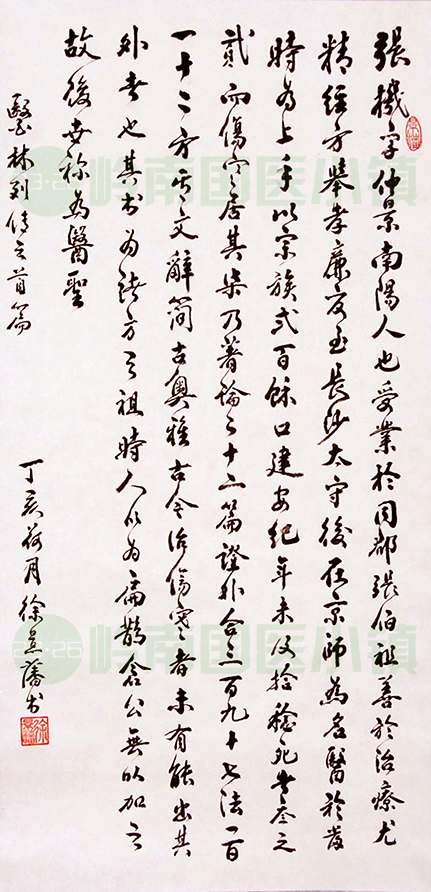 張機字仲景南陽人也受業於同郡張伯祖善於治療尤
精經方舉孝廉官至長沙太守後在京師為名醫於當
時為上手以宗族弍百餘口建安紀年未及拾稔死者叁之
貳而傷寒居其柒乃著論二十二篇證外合三百九十七法一百
一十二方其文辭簡古奧雅古今治傷寒者未有能出其
外者也其書為諸方之祖時人以為扁鵲倉公無以加之
故後世称為醫聖
醫林列傳之首篇
丁亥荷月徐景藩书
岭南国医小镇
岭南国医小镇